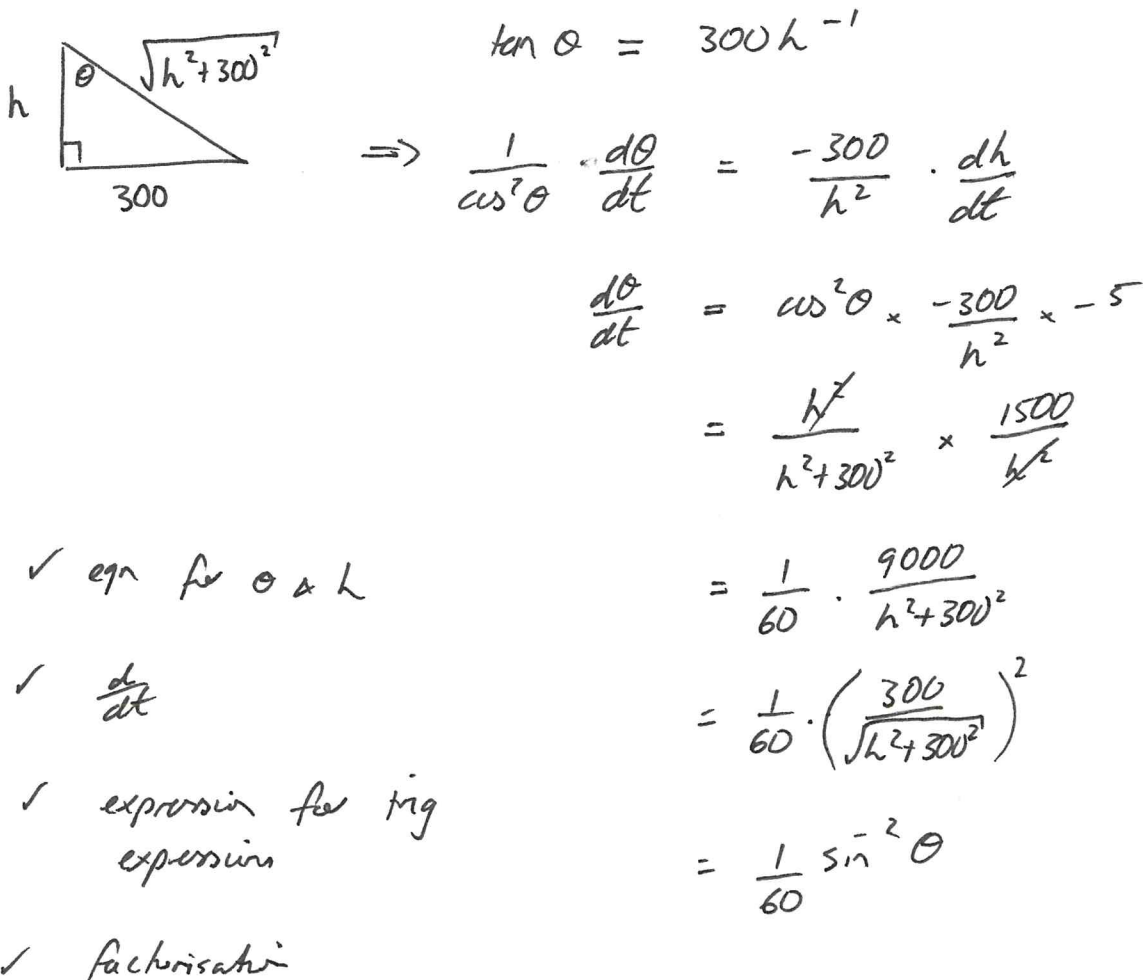 h
θ
√(h²+300²)
300
tan θ = 300h⁻¹
⇒ 1/cos²θ · dθ/dt = -300/h² · dh/dt
dθ/dt = cos²θ × -300/h² × -5
= h²/(h²+300²) × 1500/h²
= 1/60 · 9000/(h²+300²)
= 1/60 · (300/√(h²+300²))²
= 1/60 sin²θ
✓ eqn for θ & h
✓ d/dt
✓ expression for trig
expession
✓ factorisation